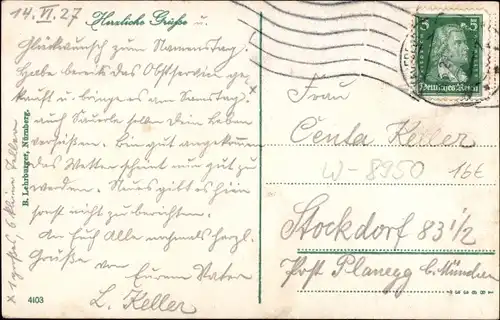 14. VI. 27
Herzliche Grüße u.
Glückwunsch zum Namenstag!
Habe bereits das Obstservice ge-
kauft u. bringe es am Samstag. x
auch Säuerle sollen dein Leben
versüßen. Bin gut angekommen
das Wetter scheint nun gut zu
werden. Neues gibt es hier
sonst nicht zu berichten.
An Euch Alle nochmals herzl.
Grüße von
Eurem Vater
L. Keller
x 1 großes, 6 kleine Teller
B. Lehrburger, Nürnberg.
4103
5 5
Deutsches Reich
Frau
Centa Keller
W-8950
16€
Stockdorf 83 1/2
Post Planegg b. München